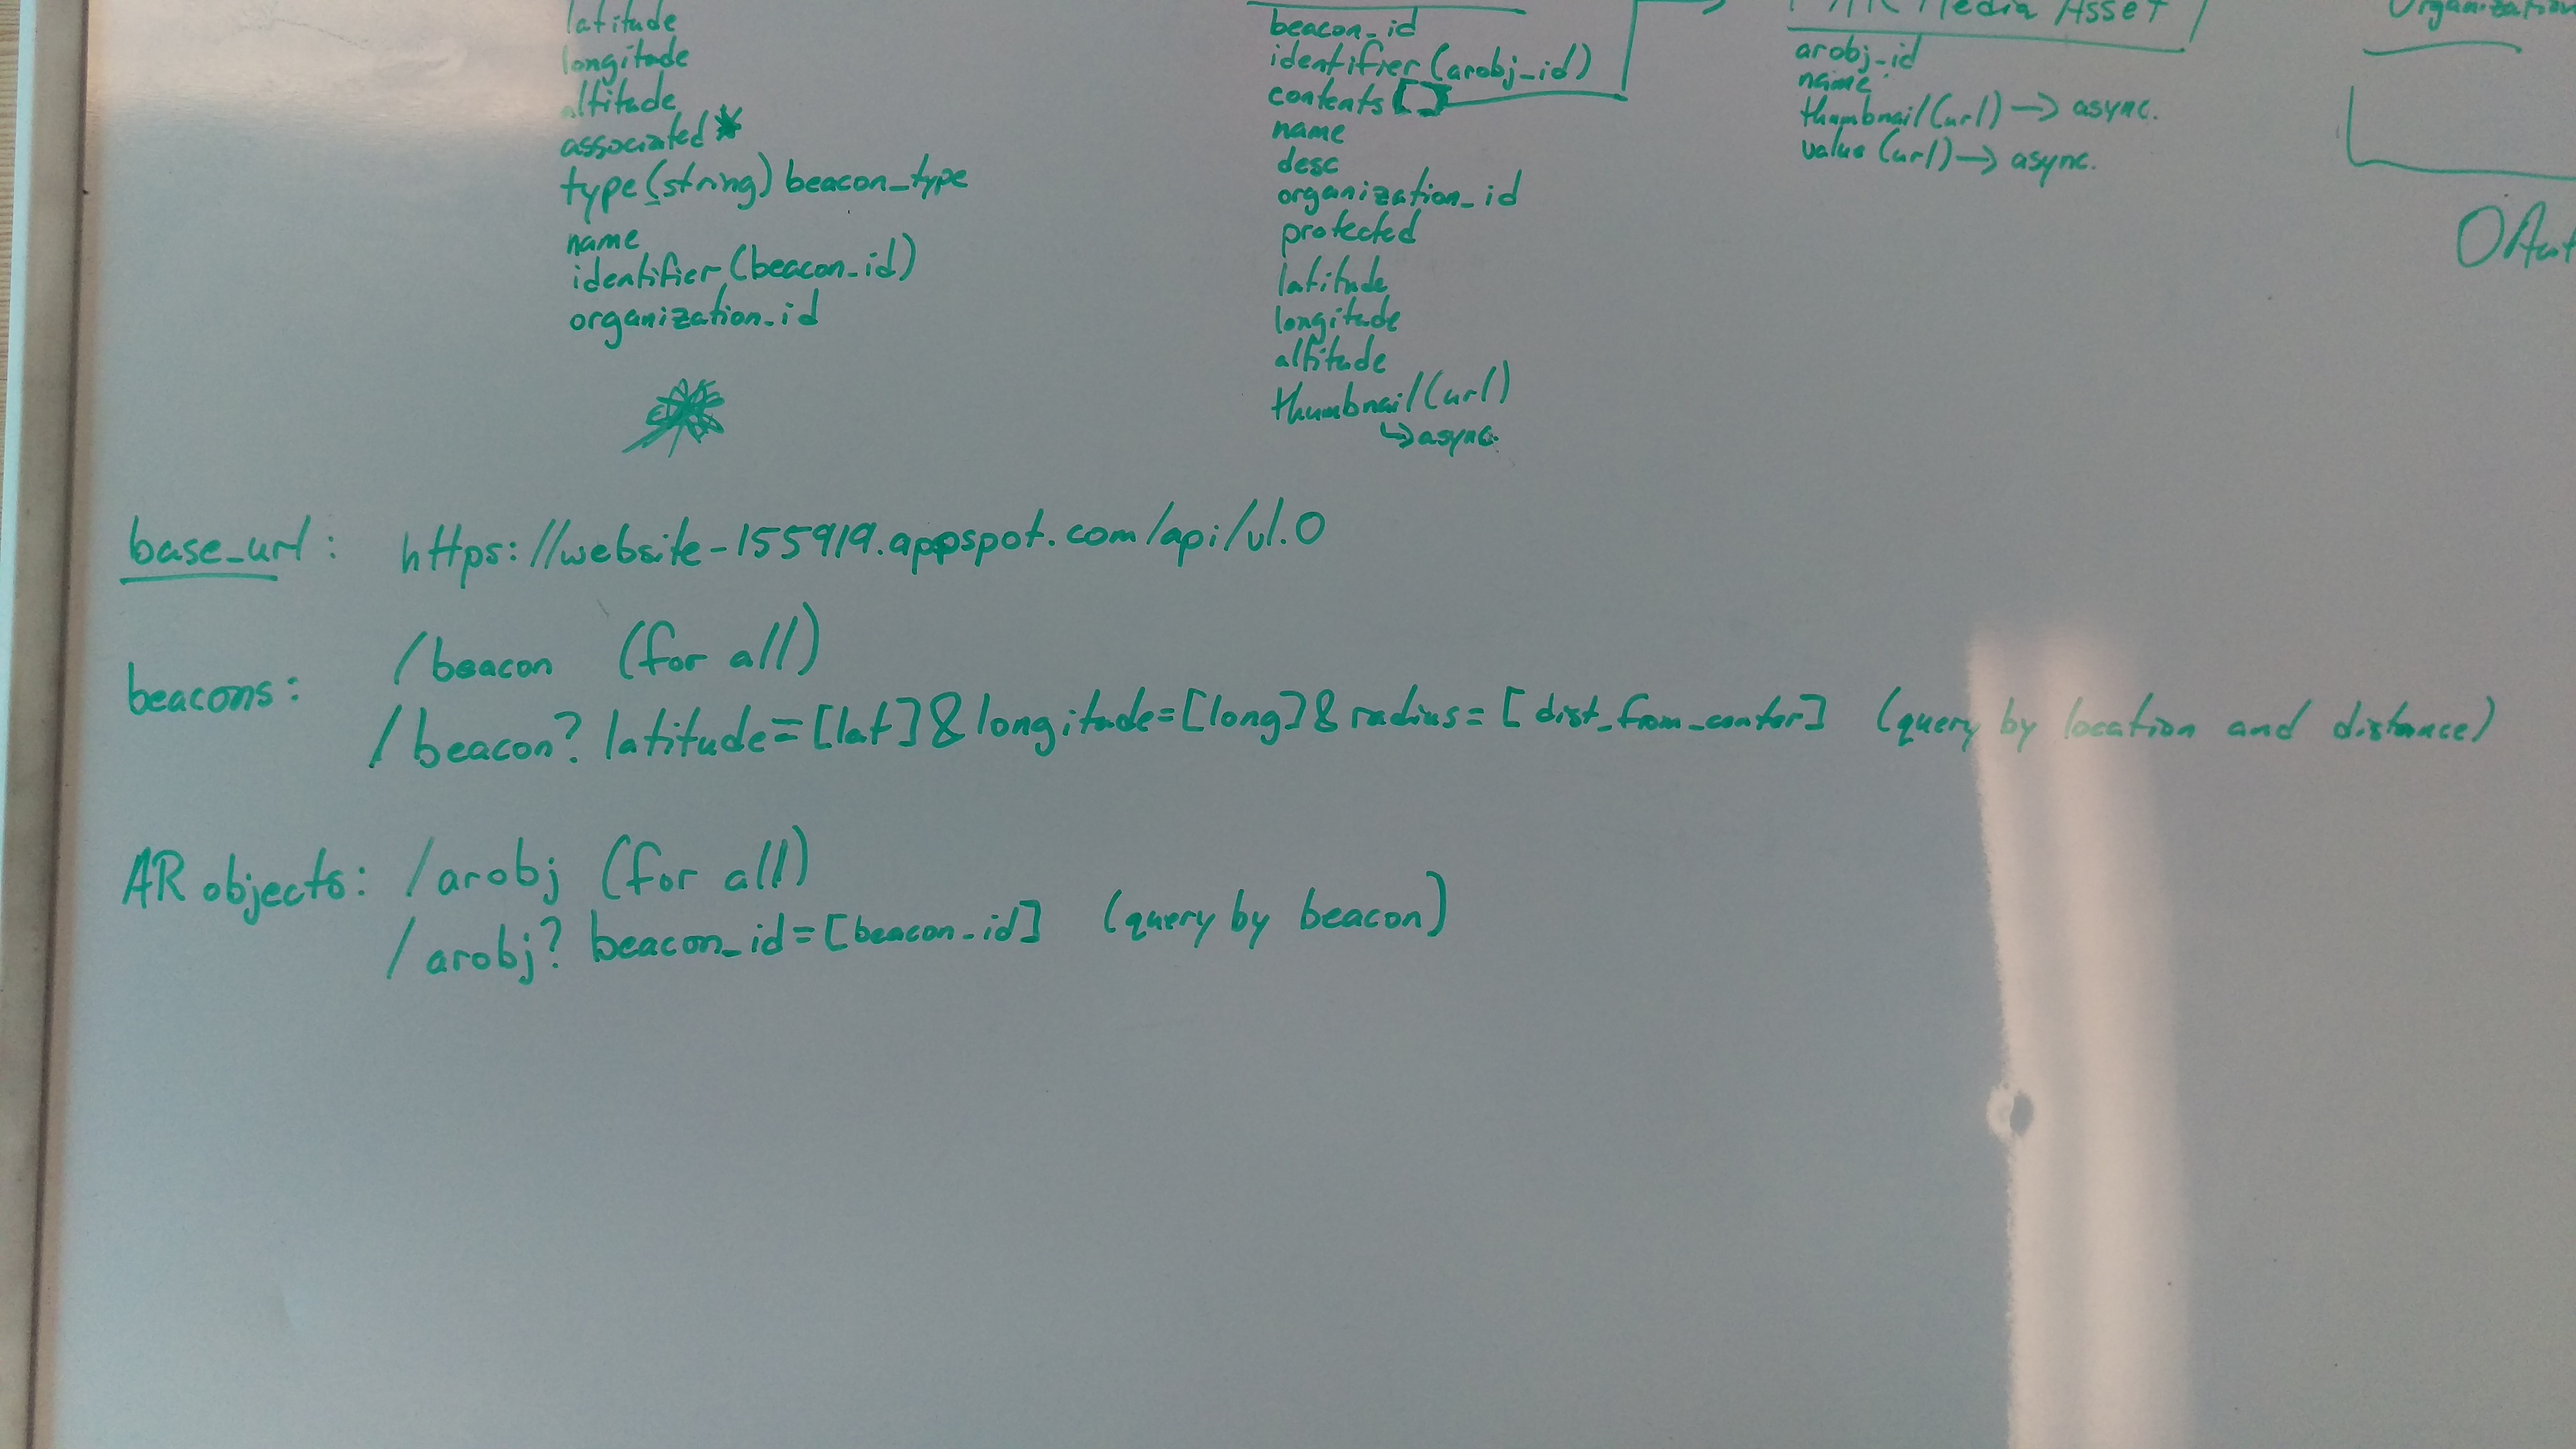 latitude
longitude
altitude
associated *
type (string) beacon_type
name
identifier (beacon_id)
organization_id
beacon_id
identifier (arobj_id)
contents []
name
desc
organization_id
protected
latitude
longitude
altitude
thumbnail (url)
↳ async.
Media Asset
arobj_id
name
thumbnail (url) → async.
value (url) → async.
Organization
base_url: https://website-155919.appspot.com/api/v1.0
beacons: /beacon (for all)
/beacon? latitude=[lat]&longitude=[long]&radius=[dist_from_center] (query by location and distance)
AR objects: /arobj (for all)
/arobj? beacon_id=[beacon_id] (query by beacon)